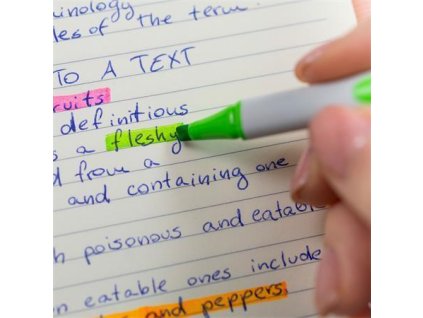 les of the term.
TO A TEXT
definitious
a fleshy
from a
and containing one
poisonous and eatable
eatable ones include
and peppers.